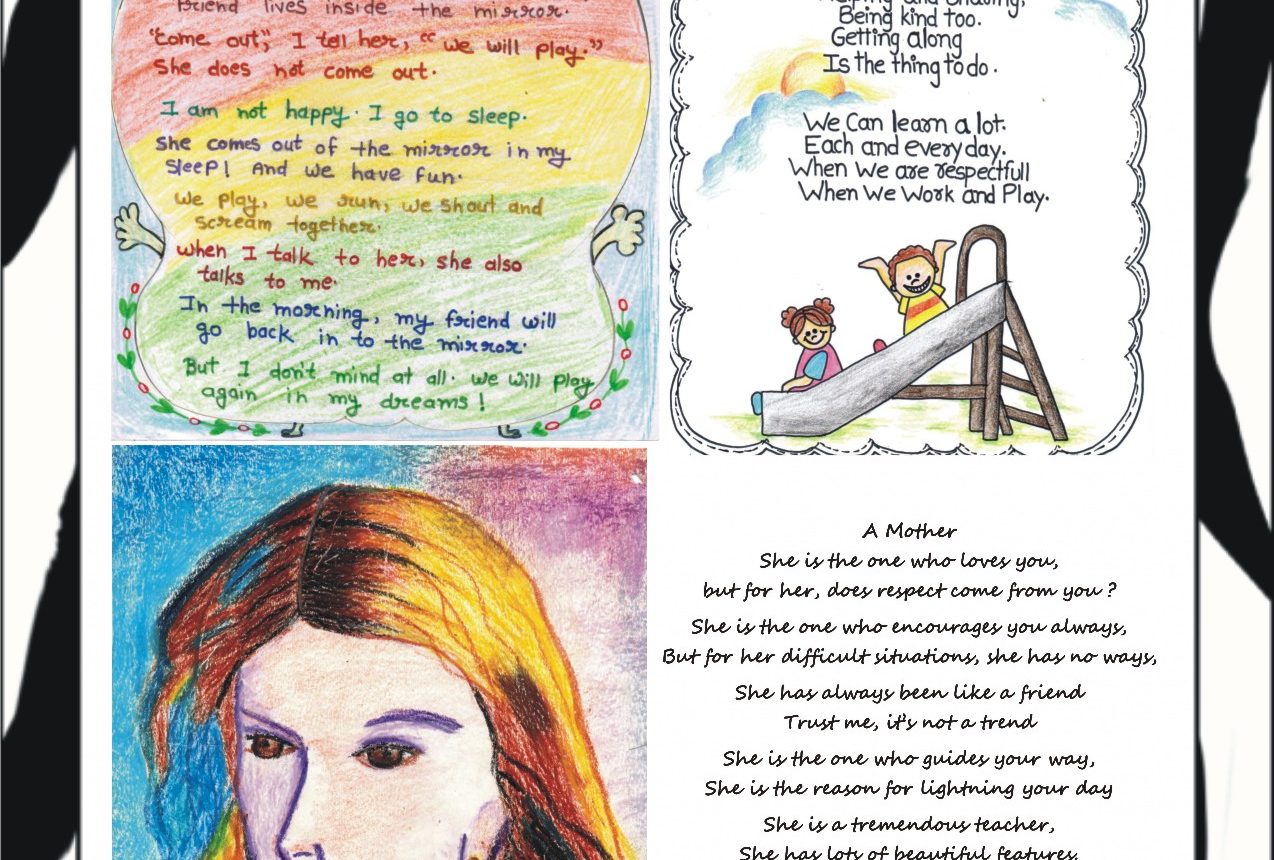 friend lives inside the mirror.
"Come out", I tell her, "we will play."
She does not come out.
I am not happy. I go to sleep.
She comes out of the mirror in my
sleep! And we have fun.
We play, we run, we shout and
scream together.
when I talk to her, she also
talks to me.
In the morning, my friend will
go back in to the mirror.
But I don't mind at all. we will play
again in my dreams!
Helping and Sharing,
Being kind too.
Getting along
Is the thing to do.
We Can learn a lot.
Each and every day.
When We are respectfull
When We Work and Play.
A Mother
She is the one who loves you,
but for her, does respect come from you ?
She is the one who encourages you always,
But for her difficult situations, she has no ways,
She has always been like a friend
Trust me, it's not a trend
She is the one who guides your way,
She is the reason for lightning your day
She is a tremendous teacher,
She has lots of beautiful features.